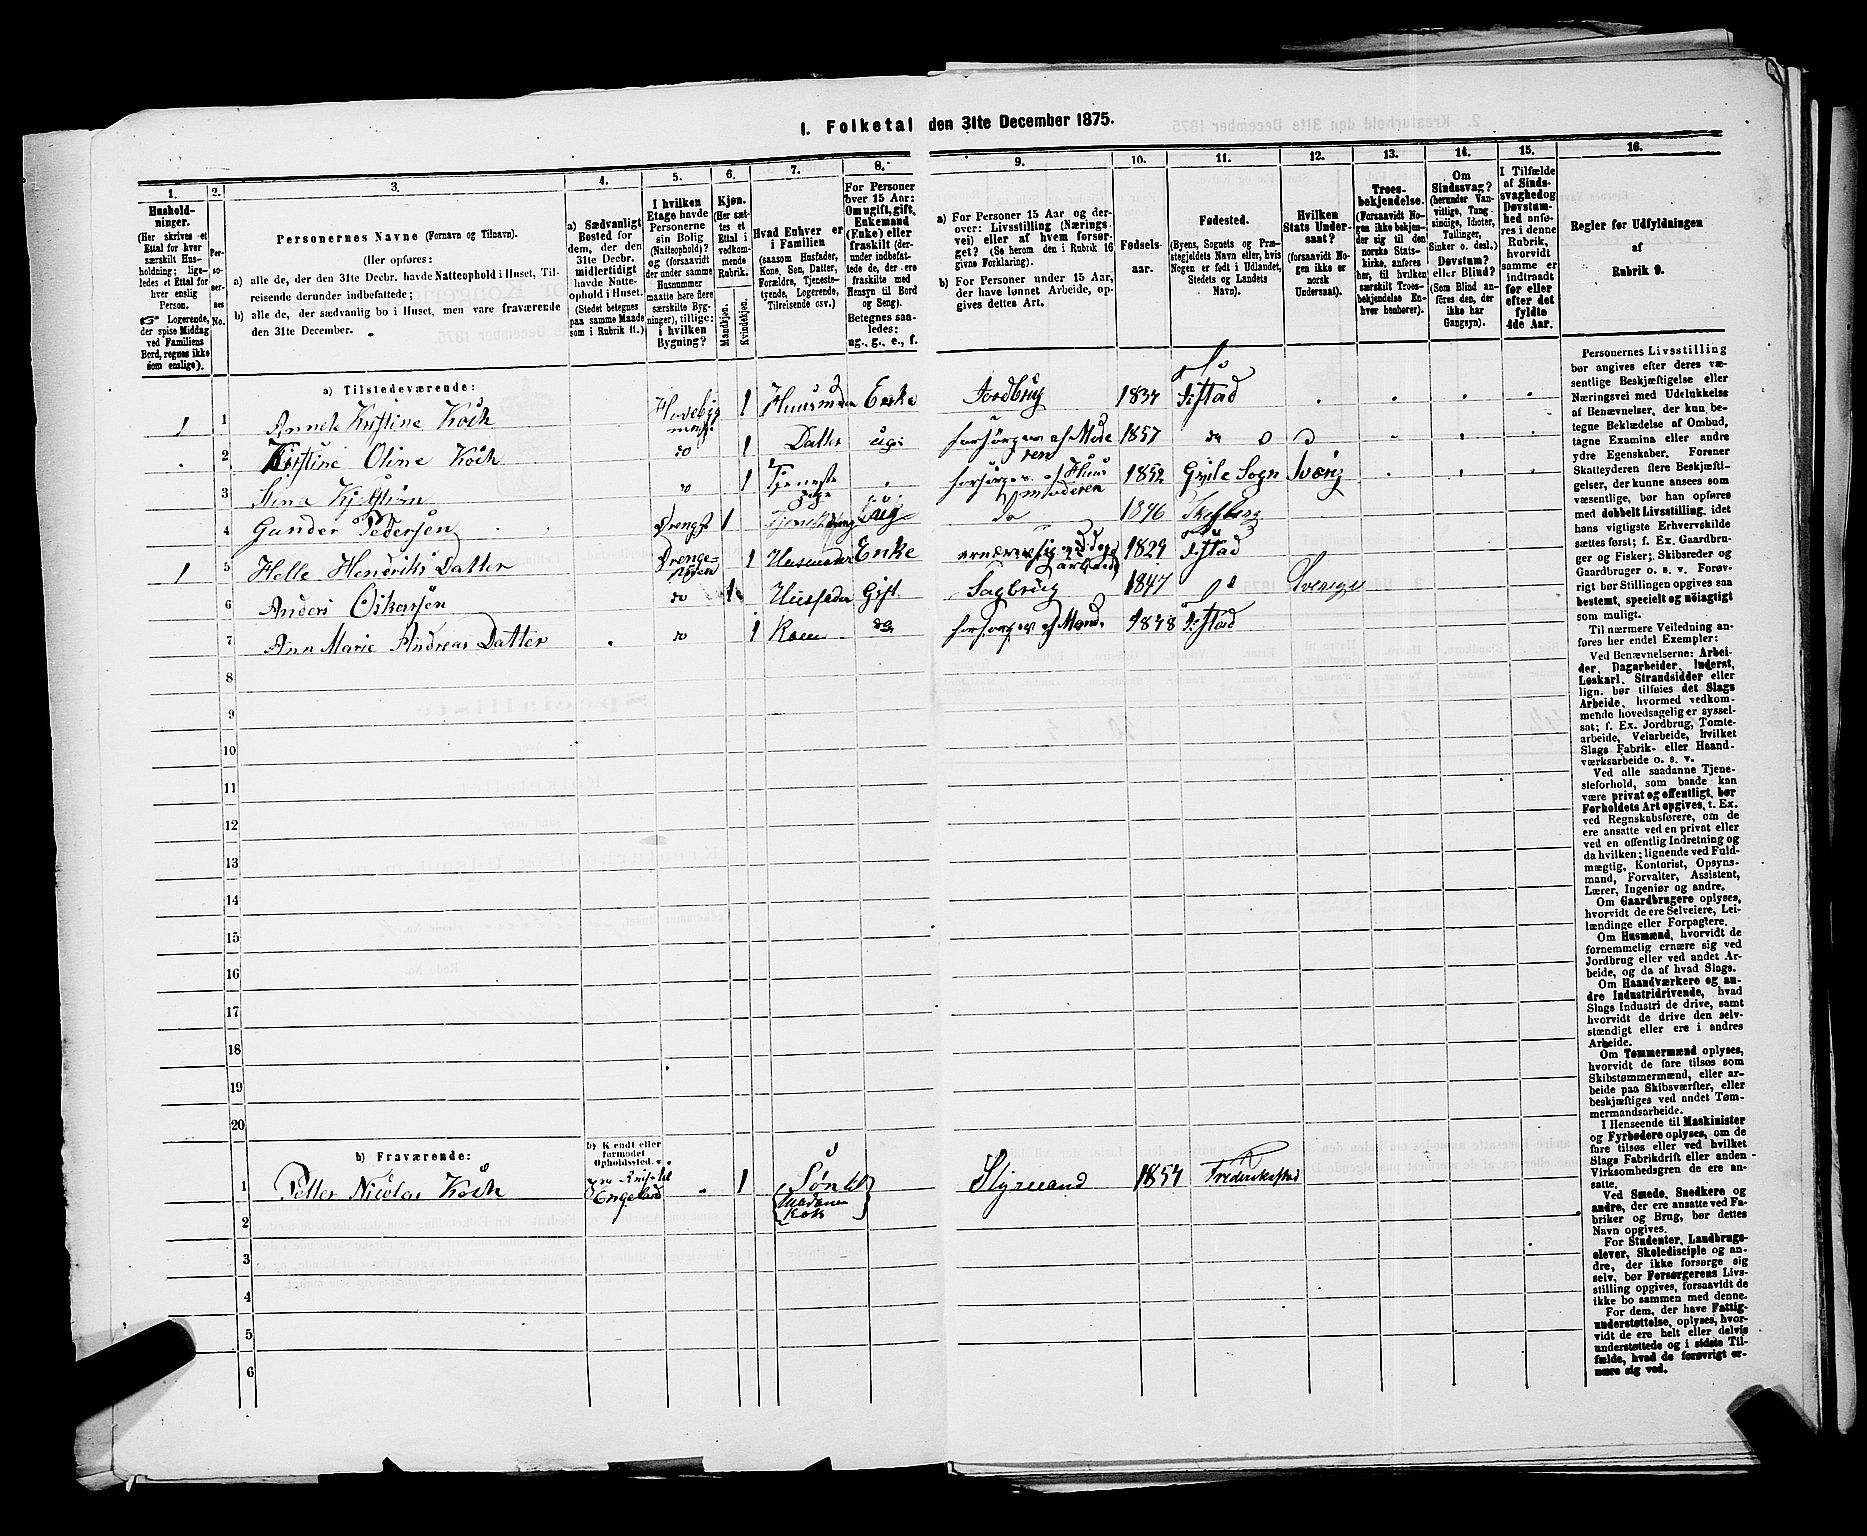 1. Folketal den 31te December 1875.
1. 2. 3. 4. 5. 6. 7. 8. 9. 10. 11. 12. 13. 14. 15. 16.
Husholdninger.
(Her skrives et
Ettal for hver
særskilt Husholdning;
ligeledes
et Ettal for
hver enslig
Person.
Logerende,
der spise Middag
ved Familiens
Bord, regnes ikke
som enslige).
Personernes No.
Personernes Navne (Fornavn og Tilnavn).
(Her opføres:
a) alle de, der den 31te Decbr. havde Natteophold i Huset, Tilreisende
derunder indbefattede;
b) alle de, der sædvanlig bo i Huset, men vare fraværende
den 31te December.
a) Sædvanligt
Bosted for
dem, der den
31te Decbr.
midlertidigt
havde Natteophold
i Huset.
(Stedet betegnes
paa samme Maade
som i Rubrik 11.)
I hvilken
Etage havde
Personerne
sin Bolig
(Natteophold)?
og (forsaavidt
der under samme
Husnummer
maatte høre flere
særskilte Bygninger),
tillige:
i hvilken
Bygning?
Kjøn.
(Her sættes
et
Ettal i
vedkommende
Rubrik.
Mandkjøn.
Kvindekjøn.
Hvad Enhver er
i Familien
(saasom Husfader,
Kone, Søn, Datter,
Forældre, Tjenestetyende,
Logerende,
Tilreisende osv.)
For Personer
over 15 Aar:
Om ugift, gift,
Enkemand
(Enke) eller
fraskilt (derindbefattede
de, der ere
fraskilte med
Hensyn til Bord
og Seng).
Betegnes saaledes:
ug., g., e., f.
a) For Personer 15 Aar og derover:
Livsstilling (Næringsvei)
eller af hvem forsørget?
(Se herom den i Rubrik 16
givne Forklaring).
b) For Personer under 15 Aar,
der have lønnet Arbeide, opgives
dettes Art.
Fødselsaar.
Fødested.
(Byens, Sognets og Præstegjeldets
Navn eller, hvis
Nogen er født i Udlandet,
Stedets og Landets
Navn).
Hvilken
Stats Undersaat?
(forsaavidt Nogen
ikke er
norsk
Undersaat).
Troesbekjendelse.
(Forsaavidt Nogen
ikke bekjender
sig til den
norske Statskirke,
anføres
her, til hvilken
særskilt Troesbekjendelse
Enhver
henhører).
Om
Sindssvag?
(herunder Vanvittige,
Tungsindige,
Idioter,
Tullinger,
Sinker o. desl.)
Døvstum?
eller Blind?
(Som Blind anføres
den, der
ikke har
Gangsyn).
I Tilfælde
af Sindssvaghed
og
Døvstumhed
anføres
i denne
Rubrik,
hvorvidt
samme er
indtraadt
før eller
efter det
fyldte
4de Aar.
Regler før Udfyldningen
af
Rubrik 9.
a) Tilstedeværende:
1 1 Annete Kristine Koch 1 Enke Jordbrug 1837
2 Kristine Oline Koch do 1 Datter ug. forsørges af Moderen 1857 do
3 Stina do 1 Tjeneste forsørges af 1852 Sogn
4 Gunder Pedersen 1 do
1 5 Helle Hendriks Datter 1 Enke 1829
6 Anders Oskarsen do 1 Husfader Gift Sagbrug 1847 Sverige
7 Ann Marie Andreas Datter do 1 Kone do forsørges af Mand
8
9
10
11
12
13
14
15
16
17
18
19
20
b) Fraværende:
b) Kendt eller
formodet
Opholdssted.
1 Petter Nicolas Koch Engeland 1 Søn Styrmand Frederikstad
2
3
4
5
6
Personernes Livsstilling
bør angives efter deres væsentlige
Beskjæftigelse eller
Næringsvei med Udelukkelse
af Benævnelser, der kun betegne
Beklædelse af Ombud,
tagne Examina eller andre
ydre Egenskaber. Forener
Skatteyderen flere Beskjæftigelser,
der kunne ansees som
væsentlige, bør han opføres
med dobbelt Livsstilling, idet
hans vigtigste Erhvervskilde
sættes først; f. Ex. Gaardbruger
og Fisker; Skibsreder og
Gaardbruger o. s. v. Forøvrigt
bør Stillingen opgives saa
bestemt, specielt og nøiagtigt
som muligt.
Til nærmere Veiledning anføres
her endel Exempler:
Ved Benævnelserne: Arbeider,
Dagarbeider, Inderst,
Løskarl, Strandsidder eller
lign. bør tilføies det Slags
Arbeide, hvormed vedkommende
hovedsagelig er sysselsat;
f. Ex. Jordbrug, Tomtearbeide,
Veiarbeide, hvilket
Slags Fabrik- eller Haandværksarbeide
o. s. v.
Ved alle saadanne Tjenesteforhold,
som baade kan
være privat og offentligt, bør
Forholdets Art opgives, t. Ex.
ved Regnskabsførere, om de
ere ansatte ved en privat eller
ved en offentlig Indretning og
da hvilken; lignende ved Fuldmægtig,
Kontorist, Opsynsmand,
Forvalter, Assistent,
Lærer, Ingeniør og andre.
Om Gaardbrugere oplyses,
hvorvidt de ere Selveiere, Leilændinge
eller Forpagtere.
Om Husmænd, hvorvidt de
fornemmelig ernære sig ved
Jordbrug eller ved andet Arbeide,
og da af hvad Slags.
Om Haandværkere og andre
Industridrivende, hvad
Slags Industri de drive, samt
hvorvidt de drive den selvstændigt
eller ere i andres
Arbeide.
Om Tømmermænd oplyses,
hvorvidt de fare tilsøs som
Skibstømmermænd, eller arbeide
paa Skibsværfter, eller
beskjæftiges ved andet Tømmermandsarbeide.
I Henseende til Maskinister
og Fyrbødere oplyses, om de
fare tilsøs eller ved hvilket
Slags Fabrikdrift eller anden
Virksomhedsgren de ere ansatte.
Ved Smede, Snedkere og
andre, der ere ansatte ved Fabriker
og Brug, bør dettes
Navn opgives.
For Studenter, Landbrugselever,
Skoledisciple og andre,
der ikke forsørge sig
selv, bør Forsørgerens Livsstilling
opgives, forsaavidt de
ikke bo sammen med denne.
For dem, der have Fattigunderstøttelse,
oplyses, hvorvidt
de ere helt eller delvis
understøttede og i sidste Tilfælde,
hvad de forøvrigt ernære
sig ved.